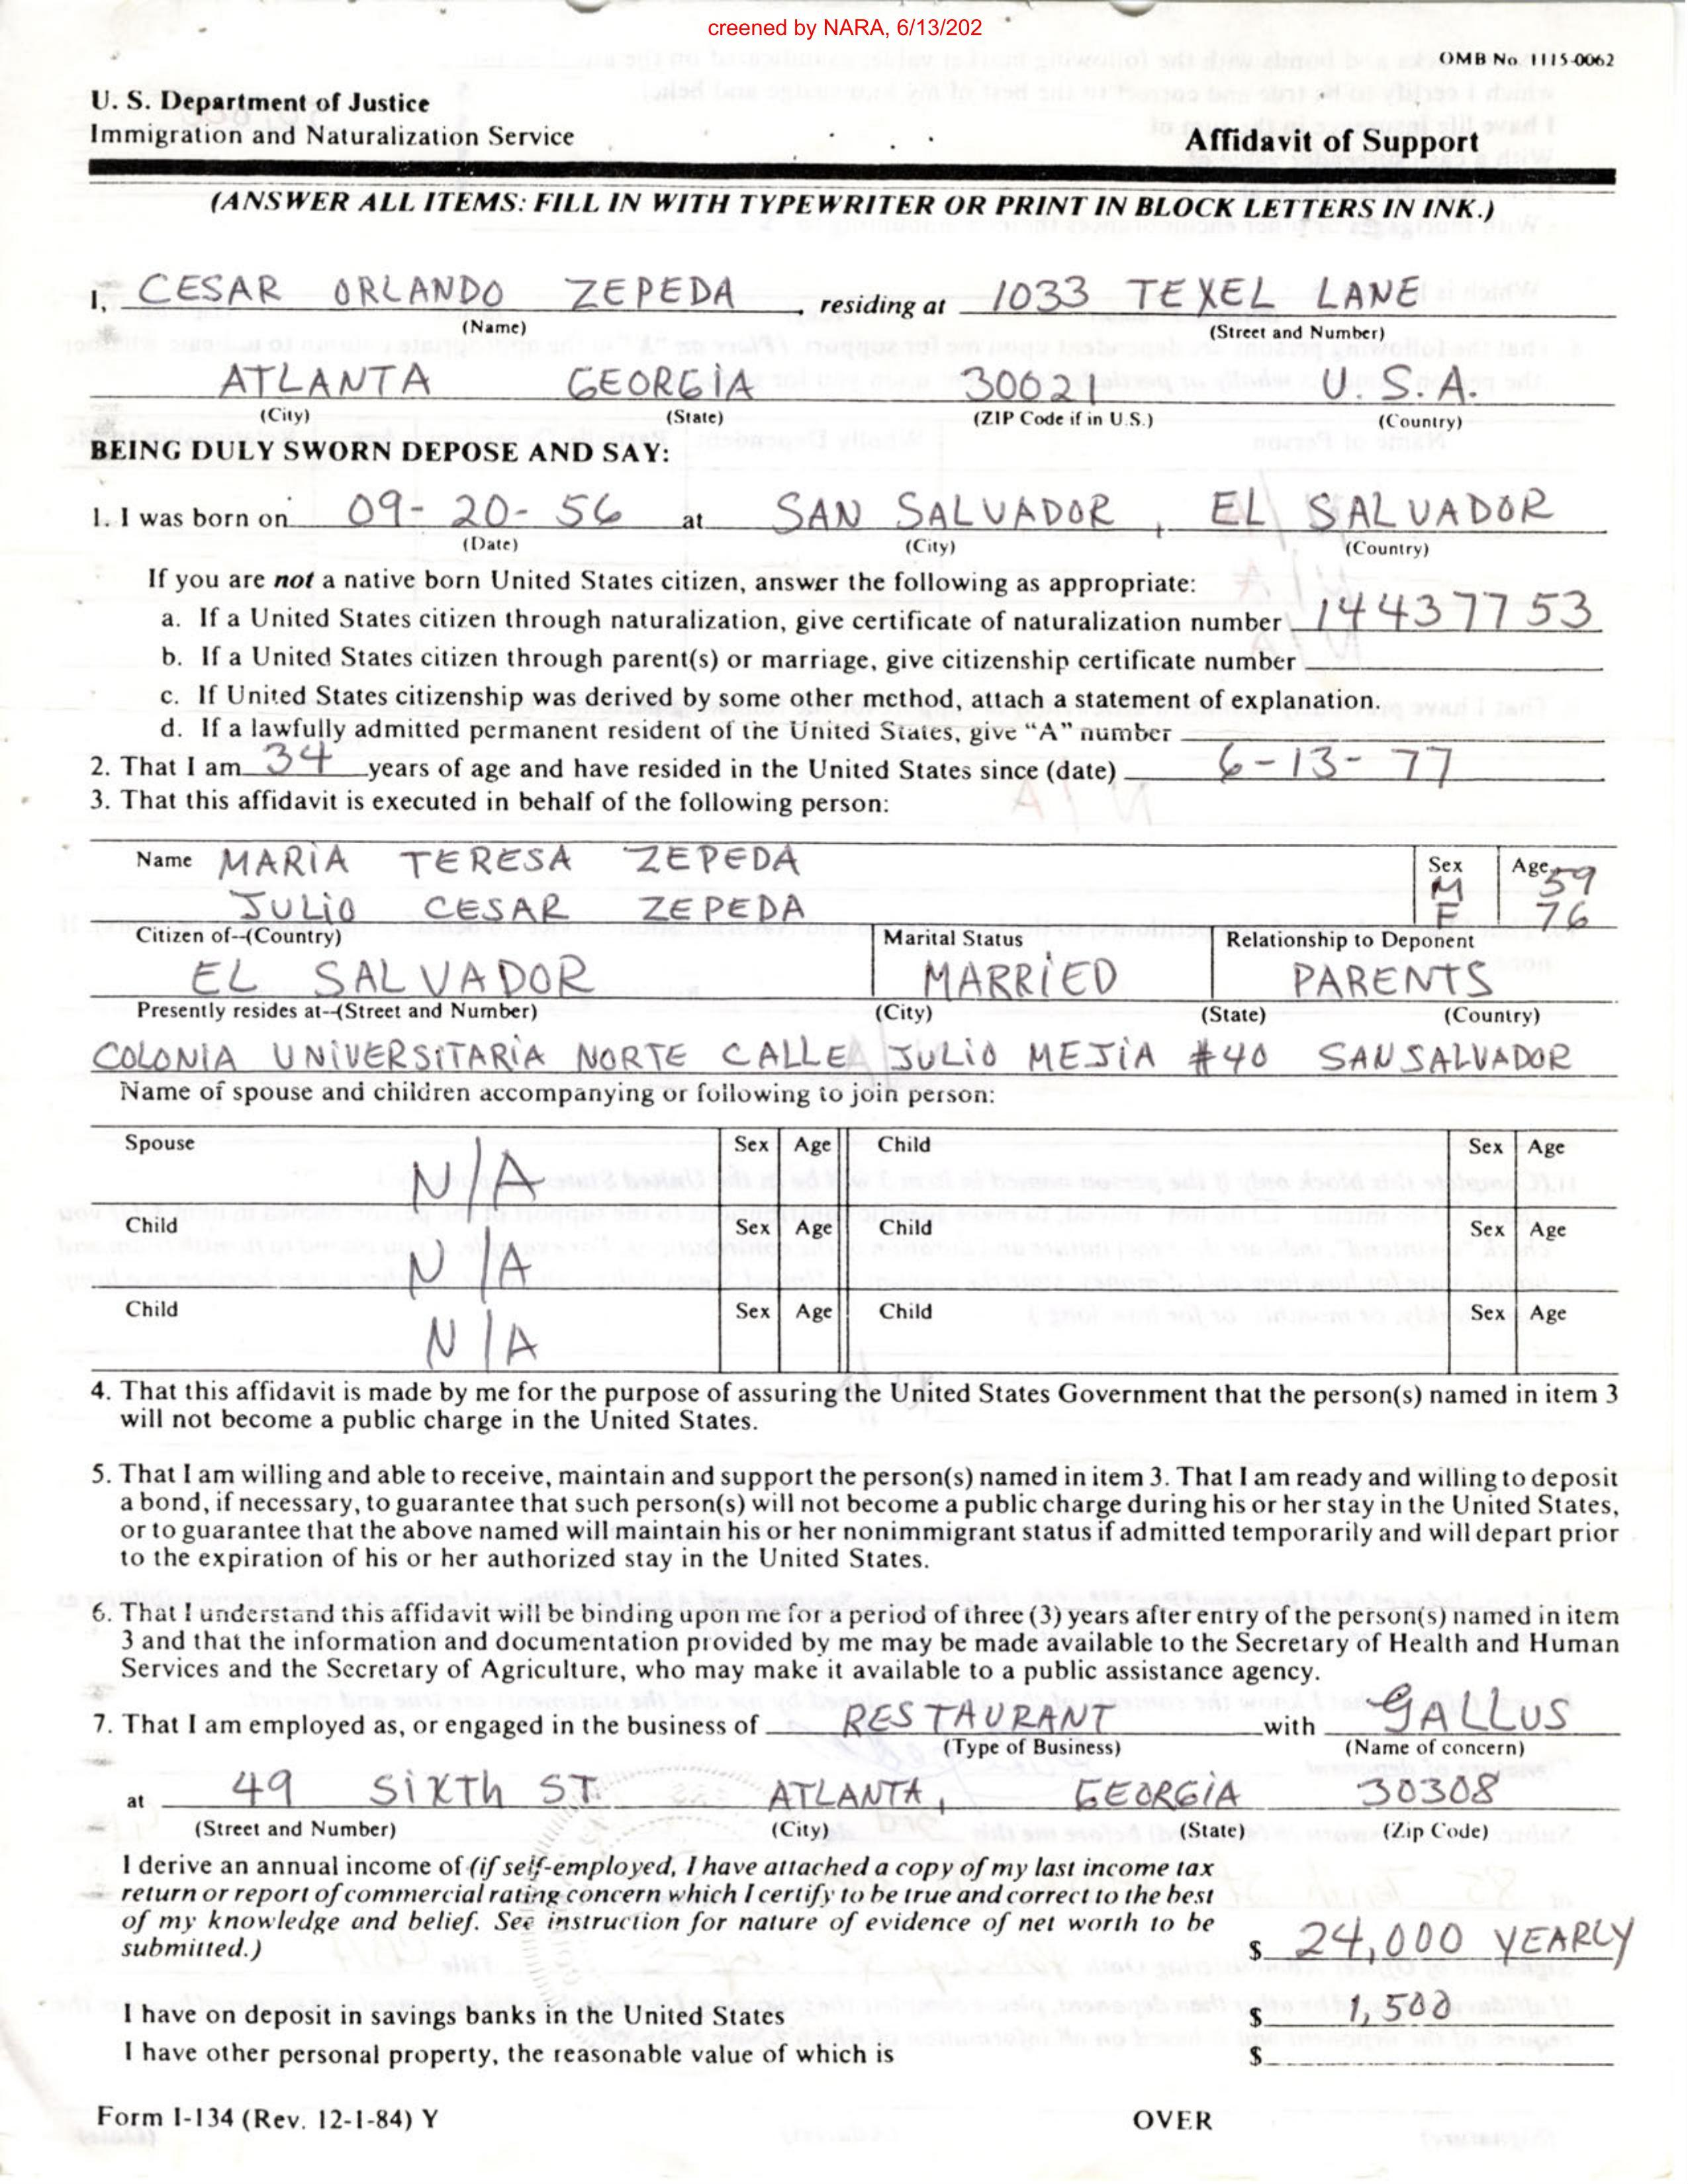 creened by NARA, 6/13/202
OMB No. 1115-0062
U. S. Department of Justice
Immigration and Naturalization Service
Affidavit of Support
(ANSWER ALL ITEMS: FILL IN WITH TYPEWRITER OR PRINT IN BLOCK LETTERS IN INK.)
I, CESAR ORLANDO ZEPEDA, residing at 1033 TEXEL LANE
(Name) (Street and Number)
ATLANTA GEORGIA 30021 U.S.A.
(City) (State) (ZIP Code if in U.S.) (Country)
BEING DULY SWORN DEPOSE AND SAY:
1. I was born on 09-20-56 at SAN SALVADOR, EL SALVADOR
(Date) (City) (Country)
If you are not a native born United States citizen, answer the following as appropriate:
a. If a United States citizen through naturalization, give certificate of naturalization number 14437753
b. If a United States citizen through parent(s) or marriage, give citizenship certificate number
c. If United States citizenship was derived by some other method, attach a statement of explanation.
d. If a lawfully admitted permanent resident of the United States, give "A" number
2. That I am 34 years of age and have resided in the United States since (date) 6-13-77
3. That this affidavit is executed in behalf of the following person:
Name MARIA TERESA ZEPEDA Sex M Age 59
JULIO CESAR ZEPEDA F 76
Citizen of--(Country) Marital Status Relationship to Deponent
EL SALVADOR MARRIED PARENTS
Presently resides at--(Street and Number) (City) (State) (Country)
COLONIA UNIVERSITARIA NORTE CALLE JULIO MEJIA #40 SAN SALVADOR
Name of spouse and children accompanying or following to join person:
Spouse N/A Sex Age Child Sex Age
Child N/A Sex Age Child Sex Age
Child N/A Sex Age Child Sex Age
4. That this affidavit is made by me for the purpose of assuring the United States Government that the person(s) named in item 3
will not become a public charge in the United States.
5. That I am willing and able to receive, maintain and support the person(s) named in item 3. That I am ready and willing to deposit
a bond, if necessary, to guarantee that such person(s) will not become a public charge during his or her stay in the United States,
or to guarantee that the above named will maintain his or her nonimmigrant status if admitted temporarily and will depart prior
to the expiration of his or her authorized stay in the United States.
6. That I understand this affidavit will be binding upon me for a period of three (3) years after entry of the person(s) named in item
3 and that the information and documentation provided by me may be made available to the Secretary of Health and Human
Services and the Secretary of Agriculture, who may make it available to a public assistance agency.
7. That I am employed as, or engaged in the business of RESTAURANT with GALLUS
(Type of Business) (Name of concern)
at 49 SIXTH ST. ATLANTA, GEORGIA 30308
(Street and Number) (City) (State) (Zip Code)
I derive an annual income of (if self-employed, I have attached a copy of my last income tax
return or report of commercial rating concern which I certify to be true and correct to the best
of my knowledge and belief. See instruction for nature of evidence of net worth to be
submitted.) $ 24,000 YEARLY
I have on deposit in savings banks in the United States $ 1,500
I have other personal property, the reasonable value of which is $
Form I-134 (Rev. 12-1-84) Y OVER